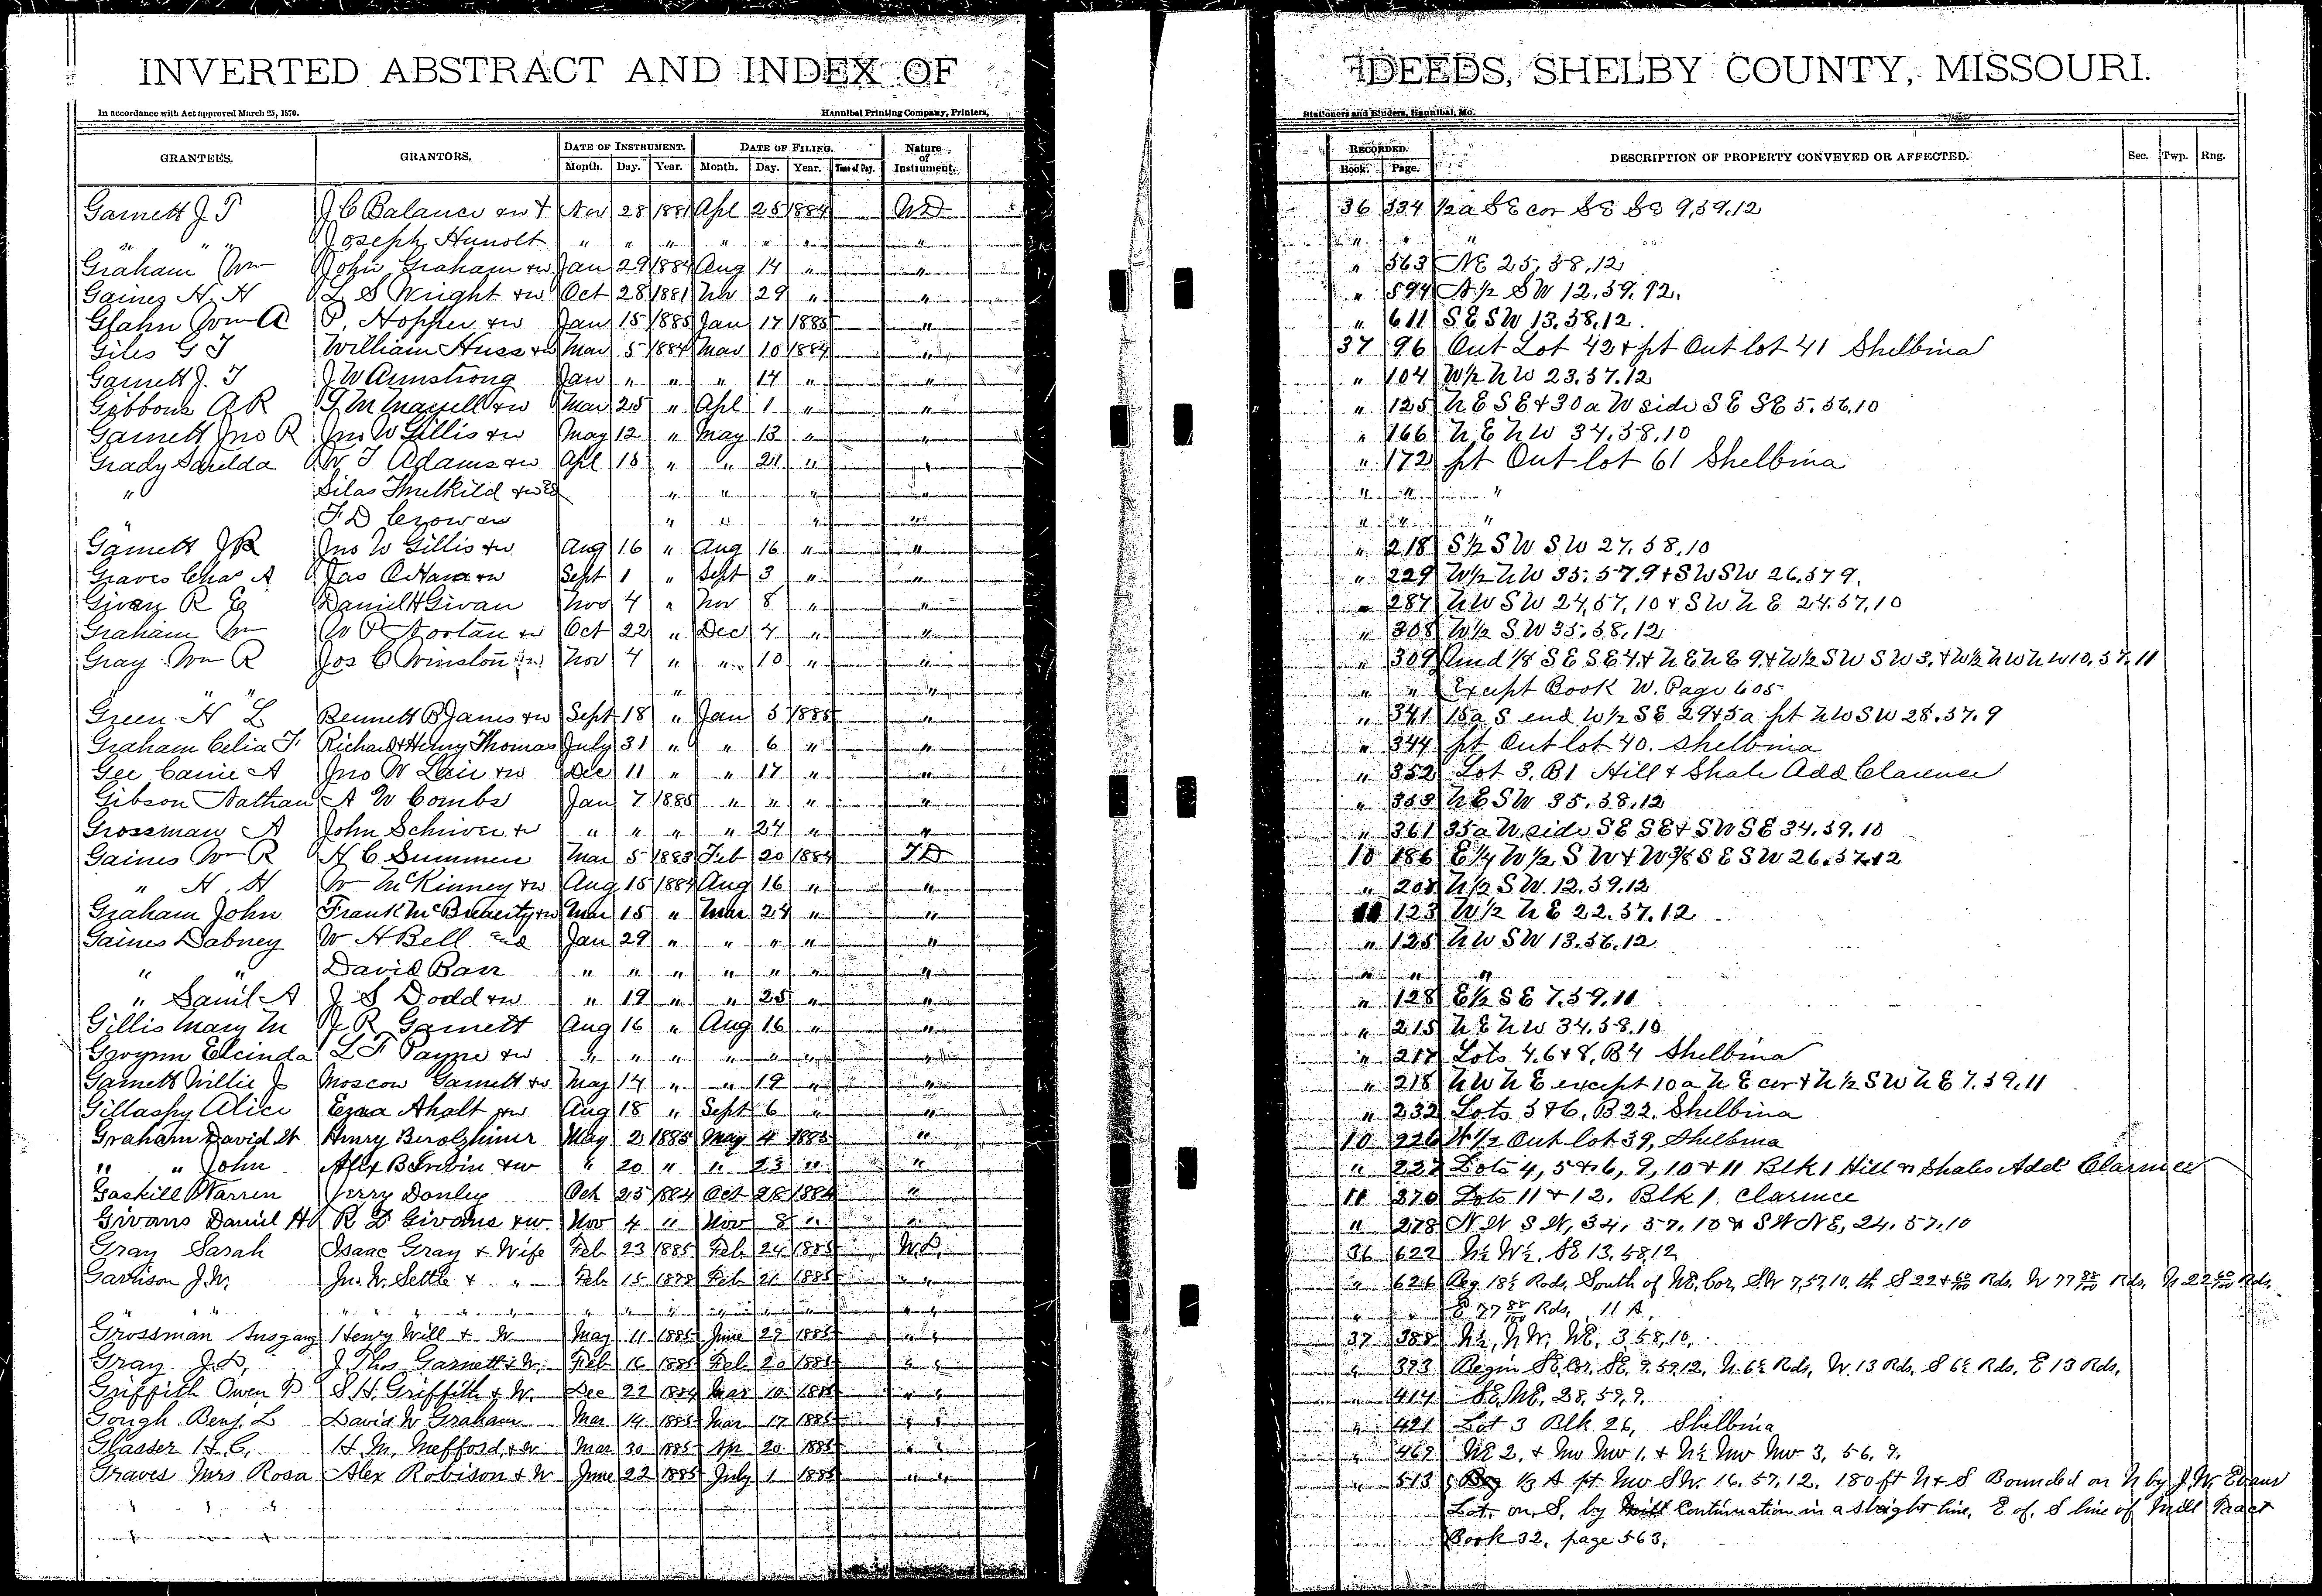 INVERTED ABSTRACT AND INDEX OF DEEDS, SHELBY COUNTY, MISSOURI.
In accordance with Act approved March 25, 1870. Hannibal Printing Company, Printers, Stationers and Binders, Hannibal, Mo.
GRANTEES. GRANTORS. DATE OF INSTRUMENT. DATE OF FILING. Nature of Instrument. RECORDED. DESCRIPTION OF PROPERTY CONVEYED OR AFFECTED. Sec. Twp. Rng.
Month. Day. Year. Month. Day. Year. Time of Day. Book. Page.
Garnett J T J C Balance +w + Nov 28 1881 Apl 25 1884 WD 36 534 ½ a SE cor SE SE 9,59,12
" " " Joseph Hunolt " " " " " " " " " "
Graham Wm John Graham +w Jan 29 1884 Aug 14 " " " 563 NE 25,58,12
Gaines H H L S Wright +w Oct 28 1881 Nov 29 " " " 594 N ½ SW 12.59.12.
Glahn Wm A P. Hopper +w Jan 15 1885 Jan 17 1885 " " 611 SE SW 13.58.12.
Giles G T William Huss +w Mar 5 1884 Mar 10 1884 " 37 96 Out Lot 42 + pt Out lot 41 Shelbina
Garnett J. T J W Armstrong Jan " " " 14 " " " 104 W½ NW 23.57.12
Gibbons A R Mar 25 " Apl 1 " " " 125 N E S E + 30 a W side S E SE 5.56.10
Garnett Jno R Jno W Gillis +w May 12 " May 13 " " " 166 N E N W 34.58.10
Grady W T Adams +w Apl 18 " " 21 " " " 172 pt Out lot 61 Shelbina
" Silas Threlkild +w " " " " " " "
" F D Crow +w " " " " " " "
Garnett J R Jno W Gillis +w Aug 16 " Aug 16 " " " 218 S½ SW SW 27.58.10
Graves Chas A Jas O'Hara +w Sept 1 " Sept 3 " " " 229 W½ N W 35.57.9 + SW SW 26.57 9.
Givan R E Daniel H Givan Nov 4 " Nov 8 " " " 287 N W SW 24,57,10 + SW N E 24.57.10
Graham Wm W P Norton +w Oct 22 " Dec 4 " " " 308 W½ SW 35.58.12
Gray Wm R Jos C Winston +w Nov 4 " " 10 " " " 309 Und 1/8 S E S E 4, + N E N E 9, + W½ SW SW 3, + W½ N W N W 10,57,11
" " " " " " Except Book W. Page 605
Green H L Bennett B James +w Sept 18 " Jan 5 1885 " " 341 15 a S end W½ SE 29 + 5 a pt N W SW 28.57.9
Graham Celia F. Richard & Henry Thomas July 31 " " 6 " " " 344 pt Out lot 40. Shelbina
Gee Carrie A Jno W Lair +w Dec 11 " " 17 " " " 352 Lot 3. B 1 Hill + Shale Add Clarence
Gibson Nathan A W Combs Jan 7 1885 " " " " " 353 N E SW 35.58.12
Grossman A John Schriver +w " " " " 24 " " " 361 35 a W. side SE SE + SW SE 34.59.10
Gaines Wm R H C Summers Mar 5 1883 Feb 20 1884 TD 10 186 E¼ W½ SW + W⅜ SE SW 26.57.12
" H. H Wm McKinney +w Aug 15 1884 Aug 16 " " " N½ SW. 12.59.12
Graham John Frank McBrearty +w Mar 15 " Mar 24 " " 11 123 W½ N E 22.57.12
Gaines Dabney W H Bell and Jan 29 " " " " " " 125 N W SW 13.56.12
" " David Barr " " " " " " " " " "
" Saml A J S Dodd +w " 19 " " 25 " " " 128 E½ SE 7.59.11
Gillis Mary M J R Garnett Aug 16 " Aug 16 " " " 215 N E N W 34.58.10
Gwynn Elcinda L F Payne +w " " " " " " " " 217 Lots 4.6 + 8, B 4 Shelbina
Garnett Willie J Moscow Garnett +w May 14 " " 19 " " " 218 N W N E except 10 a N E cor + N½ SW N E 7.59.11
Gillaspy Alice Ezra Ahalt +w Aug 18 " Sept 6 " " " 232 Lots 5 + 6, B 22. Shelbina
Graham David W Henry Berolzhimer May 2 1885 May 4 1885 " 10 226 W ½ Out lot 39, Shelbina
" " John Alex B Irwin +w " 20 " " 23 " " " 227 Lots 4, 5 + 6, 9, 10 + 11 Blk 1 Hill & Shales Add Clarence
Gaskill Warren Jerry Donley Oct 25 1884 Oct 28 1884 " 11 270 Lots 11 + 12. Blk 1. Clarence
Givans Daniel H R E Givans +w Nov 4 " Nov 8 " " " 278 N W S W, 34, 57, 10 + SW NE, 24.57.10
Gray Sarah Isaac Gray + Wife Feb 23 1885 Feb 24 1885 W.D. 36 622 N½ W½ SE 13,58,12
Garrison J.W. Jn. W. Settle + " Feb 15 1878 Feb 21 1885 " " " 626 Beg 18½ Rods, South of NE, Cor, SW 7,57,10. th S 22 60/100 Rds. W 77 88/100 Rds, N 22 60/100 Rds.
" " " " " " " " " " " " " " " E 77 88/100 Rds, 11 A
Grossman Ausgang Henry Will + W May 11 1885 June 29 1885 " " 37 388 N½, N W, NE, 3,58,10,
Gray J.D. J. Thos Garnett + W. Feb 16 1885 Feb 20 1885 " " " 393 Begin SE, Cor, SE, 9,59,12, N. 6½ Rds, W. 13 Rds, S 6½ Rds, E 13 Rds,
Griffith Owen P S. H. Griffith + W. Dec 22 1884 Mar 10 1885 " " " 414 SE, NE, 28,59,9,
Gough Benj. L David W Graham Mar 14 1885 Mar 17 1885 " " " 421 Lot 3 Blk 26, Shelbina
Glasser H.C. H. M. Mefford + W Mar 30 1885 Apr 20 1885 " " " 469 NE 2, + NW NW 1, + N½ NW NW 3, 56, 9,
Graves Mrs Rosa Alex Robison + W June 22 1885 July 1 1885 " " " 513 Beg ⅓ A pt NW SW. 16, 57, 12. 180 ft N + S Bounded on N by J.W. Evans
" " " Lot, on, S, by Continuation in a straight line, E of, S line of Mill Tract
" " Book 32, page 563,